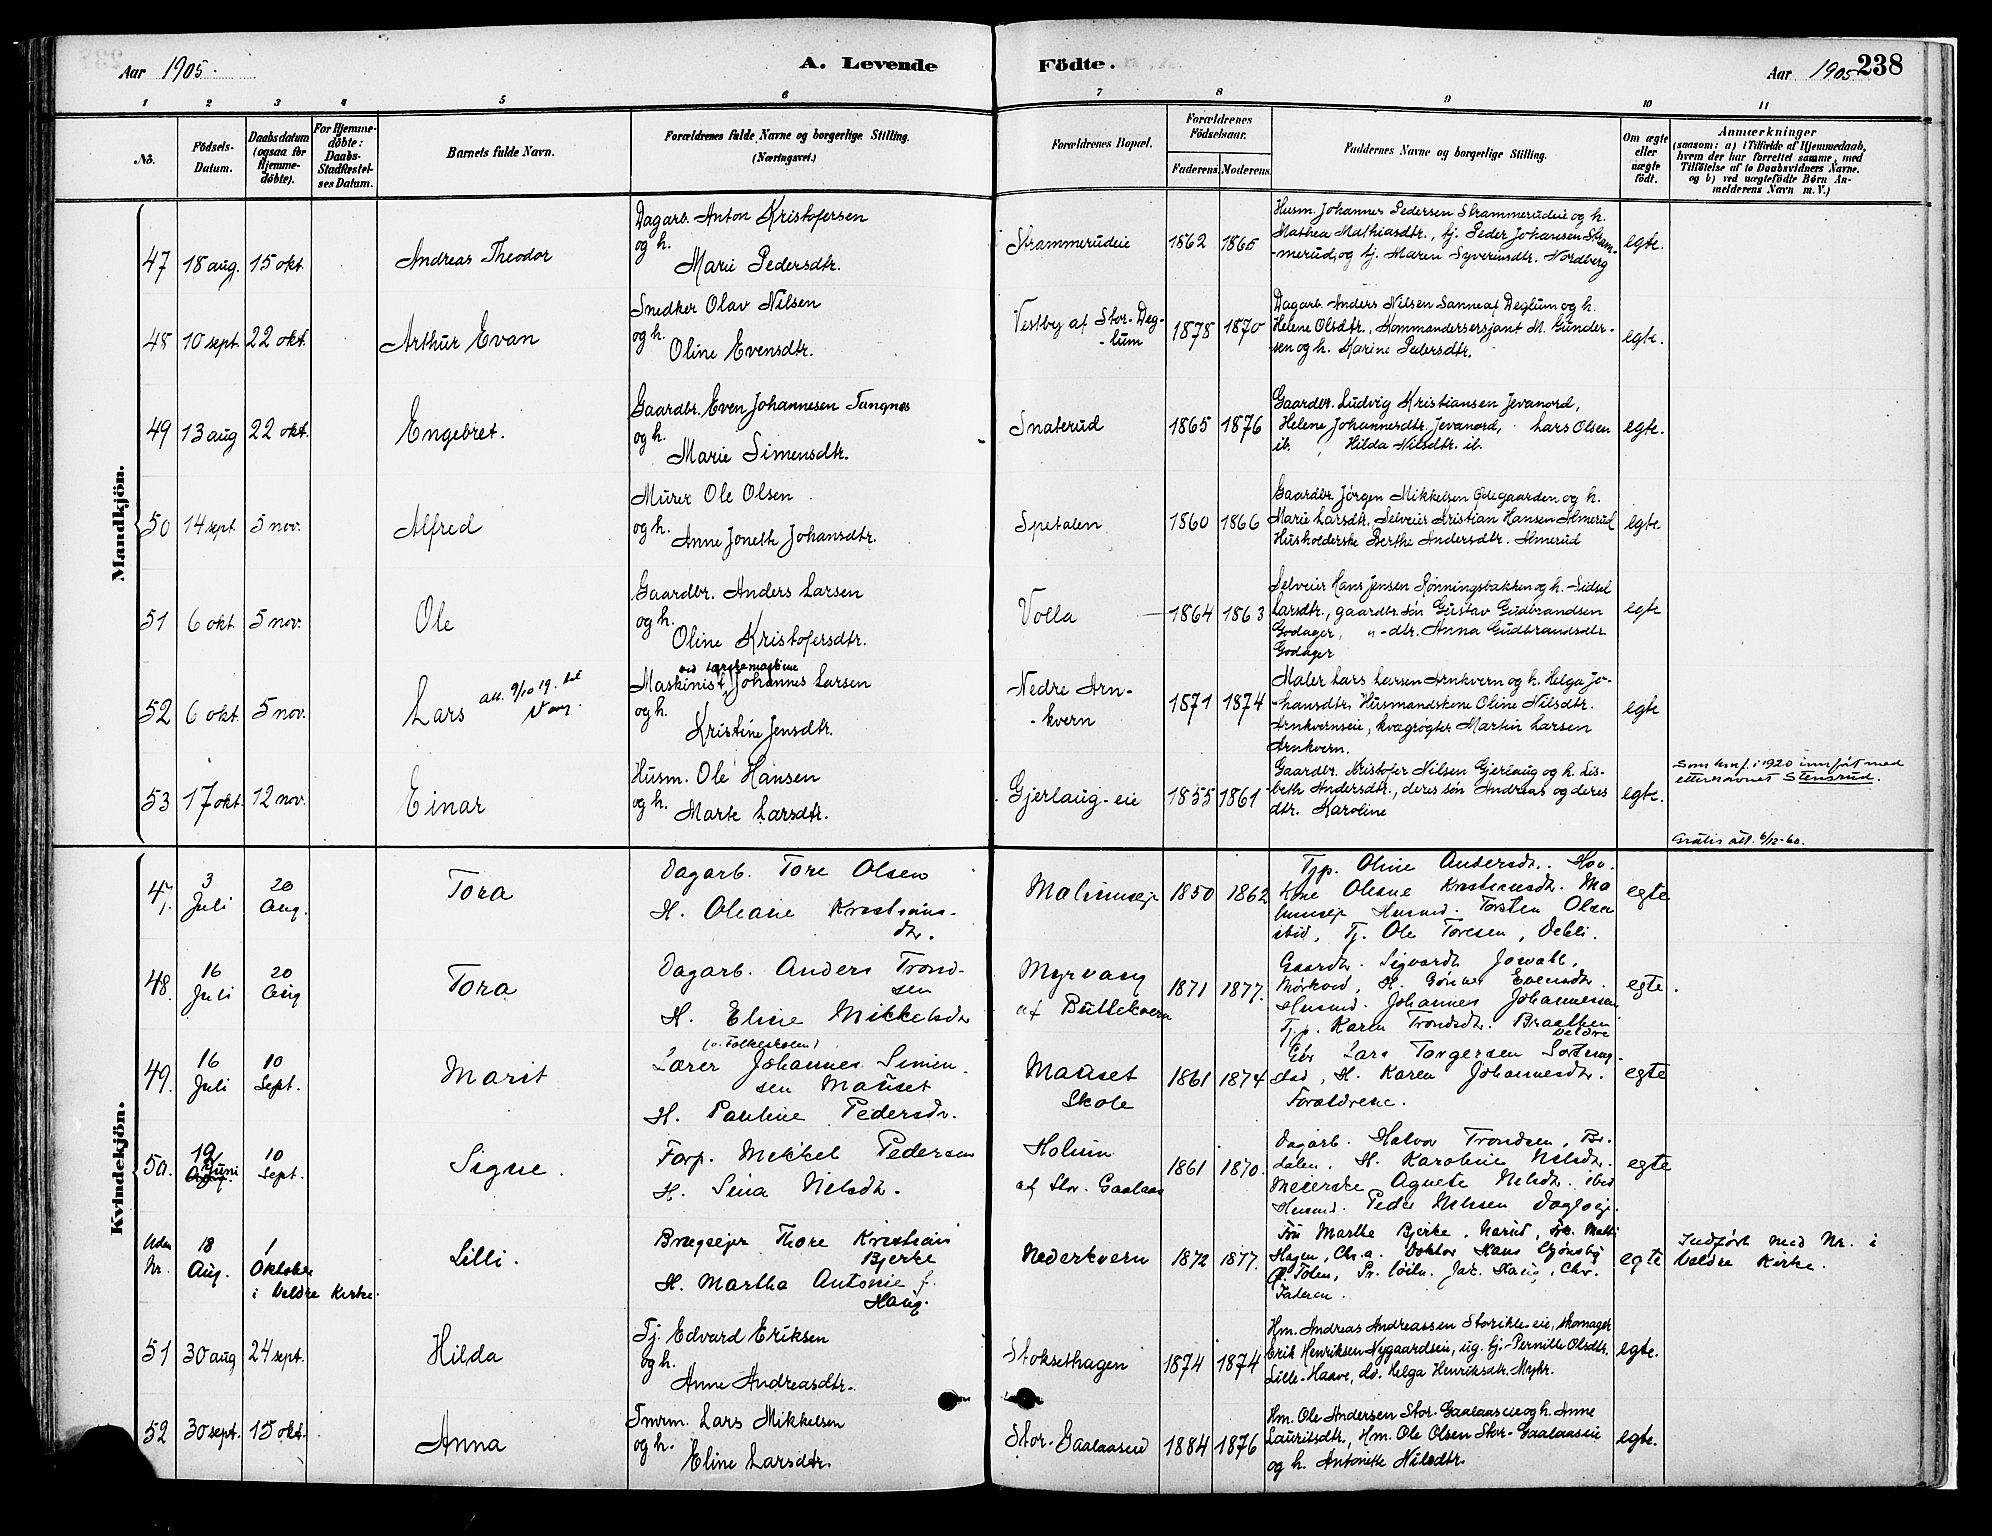 Aar 1905.
A. Levende
Födte.
Aar 1905
238
1 2 3 4 5 6 7 8 9 10 11
No.
Födsels-
Datum.
Daabsdatum
(ogsaa for
Hjemme-
døbte).
For Hjemme-
döbte:
Daabs-
Stadfæstel-
ses Datum.
Barnets fulde Navn.
Forældrenes fulde Navne og borgerlige Stilling.
(Næringsvei.)
Forældrenes Bopæl.
Forældrenes
Födselsaar.
Faderens. Moderens.
Faddernes Navne og borgerlige Stilling.
Om ægte
eller
uægte
födt.
Anmærkninger
(saasom: a) i Tilfælde af Hjemmedaab,
hvem der har forrettet samme, med
Tilföielse af to Daabsvidners Navne.
og b) ved uægtefödte Börn An-
melderens Navn m. V.)
Mandkjön.
47 18 aug. 15 okt. Andreas Theodor
Dagarb. Anton Kristofersen
og h.
Marie Pedersdtr.
Strammerudeie 1862 1865
Husm. Johannes Pedersen Strammerudeie og h.
Mathea Mathiasdtr., tj. Peder Johansen Stram-
-merud, og tj. Maren Syverinsdtr. Nordberg
egte.
48 10 sept. 22 okt. Arthur Evan
Snedker Olav Nilsen
og h.
Oline Evensdtr.
Vestby af Stor-Deg-
-lum
1878 1870
Dagarb. Anders Nilsen Sanneaf Deglum og h.
Helene Olsdtr., Kommandersersjant M. Gunder-
-sen og h. Karine Pedersdtr.
egte.
49 13 aug 22 okt. Engebret.
Gaardbr. Even Johannesen Tangnes
og h.
Marie Simensdtr.
Snaterud 1865 1876
Gaardbr. Ludvig Kristiansen Jevanord,
Helene Johannesdtr. Jevanord, Lars Olsen
ib. , Hilda Nilsdtr. ib.
egte.
50 14 sept 5 nov. Alfred
Murer Ole Olsen
og h.
Anne Jonette Johansdtr.
Spetalen 1860 1866
Gaardbr. Jörgen Mikkelsen Ødegaarden og h.
Marie Larsdtr. Selveier Kristian Hansen Almerud
Husholderske Berthe Andersdtr. Almerud
egte
51 6 okt. 5 nov. Ole
Gaardbr. Anders Larsen
og h.
Oline Kristofersdtr.
Volla 1864 1863
Selveier Hans Jensen Rønningsbakken og h. Sidsel
Larsdtr., gaardbr. sön Gustav Gudbrandsen
Godager, „-dtr. Anna Gudbrandsdtr.
Godager
egte
52 6 okt. 5 nov. Lars
att. 9/10 19. til
Vang.
ved tærskemaskine
Maskinist Johannes Larsen
og h.
Kristine Jensdtr.
Nedre Arn-
-kvern
1871 1874
Maler Lars Larsen Arnkvern og h. Helga Jo-
-hansdtr. Husmandskone Oline Nilsdtr.
Arnkvernseie, kvægrøgter Martin Larsen
Arnkvern.
egte
53 17 okt. 12 nov. Einar
Husm. Ole Hansen
og h.
Marte Larsdtr.
Gjerlaug-eie 1855 1861
Gaardbr. Kristofer Nilsen Gjerlaug og h. Lis-
-beth Andersdtr., deres sön Andreas og deres
dtr. Karoline
egte.
Som konf. i 1920 innført med
etternavnet Stensrud.
Gratis att. 6/12-60.
Kvindekjön.
47. 3 Juli 20 Aug. Tora
Dagarb. Tore Olsen
H. Oleane Kristians-
dtr.
1850 1862
Tjp. Oline Andersdtr.
Kone Oleane Kristiansdtr. Ma
Husmd. Torsten Olsen
ibid, Tj. Ole Toresen, Dehli.
egte
48. 16 Juli 20 Aug Tora
Dagarb. Anders Trond-
sen
H. Eline Mikkelsdtr
Myrvang
af Buttekvern
1871 1877.
Gaardbr. Sigvardt
H. Evensdtr.
Husmd. Johannes Johannessen
Tj.p. Karen Trondsdtr. Braathen
Veldre
egte.
49. 16 Juli 10 Sept. Marit
(v. Folkeskolen)
Lærer Johannes Simen-
sen Mauset
H. Pauline Pedersdtr.
Mauset
Skole
1861 1874
Gbr Lars Torgersen
H. Karen Johannesdtr.
Forældrene.
egte
50. 19 Juni 10 Sept. Signe.
Forp. Mikkel Pedersen
H. Sina Nilsdtr.
Holum
af Stor. Gaalaas
1861 1870.
Dagarb. Halvor Trondsen, Br.
dalen, H. Karoline Nilsdtr.
Meierske Agnete Nilsdtr. ibid
Husmd. Peder Nilsen
egte
Uden
Nr. 18 Aug. 1 Oktober
i Veldre Kirke.
Lilli.
Brugseier Thore Kristian
Bjerke
H. Martha Antonie f.
Haug.
Nederkvern 1872 1877.
Fru Marthe Bjerke, Narud,
Hagen, Chr.a. Doktor Hans Gjönsby
Ø. Toten, Pr. löitn. Jac. Haug, Chr.
Faderen.
egte
Indført med Nr. i
Veldre Kirke.
51 30 aug 24 sept. Hilda
Tj. Edvard Eriksen
og h.
Anne Andreasdtr.
Stoksethagen 1874 1874
Hm. Andreas Andreassen eie, skomager
Erik Henriksen Nygaardseie, ug. tj. Pernille Olsdtr.
Lille-Haave, do. Helga Henriksdtr.
egte.
52 30 sept. 15 okt. Anna
Tmrm. Lars Mikkelsen
og h.
Eline Larsdtr.
Stor-Gaalaaseie 1884 1876
Hm. Ole Andersen Stor-Gaalaaseie og h. Anne
Lauritsdtr., Hm. Ole Olsen Stor-Gaalaaseie
og h. Antonette Nilsdtr.
egte.